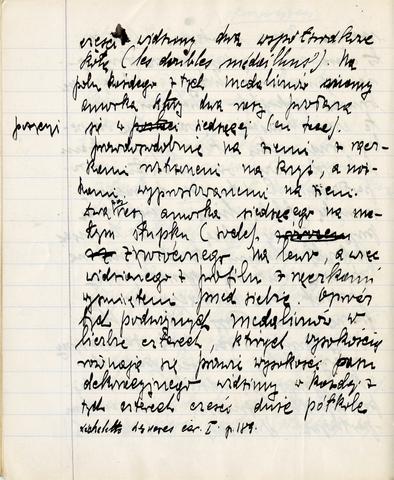 części widzimy dwa współśrodkowe
koła ("les doubles médaillons"). Na
polu każdego z tych medalionów mamy
amorka który dwa razy powtarza
pozycji
się w siedzącej (en face).
prawdopodobnie na ziemi z rącz-
kami wspartymi na krzyż, a nóż-
kami wyprostowanymi na ziemi.
Dwa razy amorka siedzącego na ma-
łym słupku (socle).
zwróconego na lewo, a więc
widzianego z profilu z rączkami
wyciągniętemi przed siebie. Oprócz
tych podwójnych medalionów w
liczbie czterech, których wysokością
równają się prawie wysokości pasa
dekoracyjnego widzimy w każdej z
tych czterech części duże półkole
car. I. p. 189.